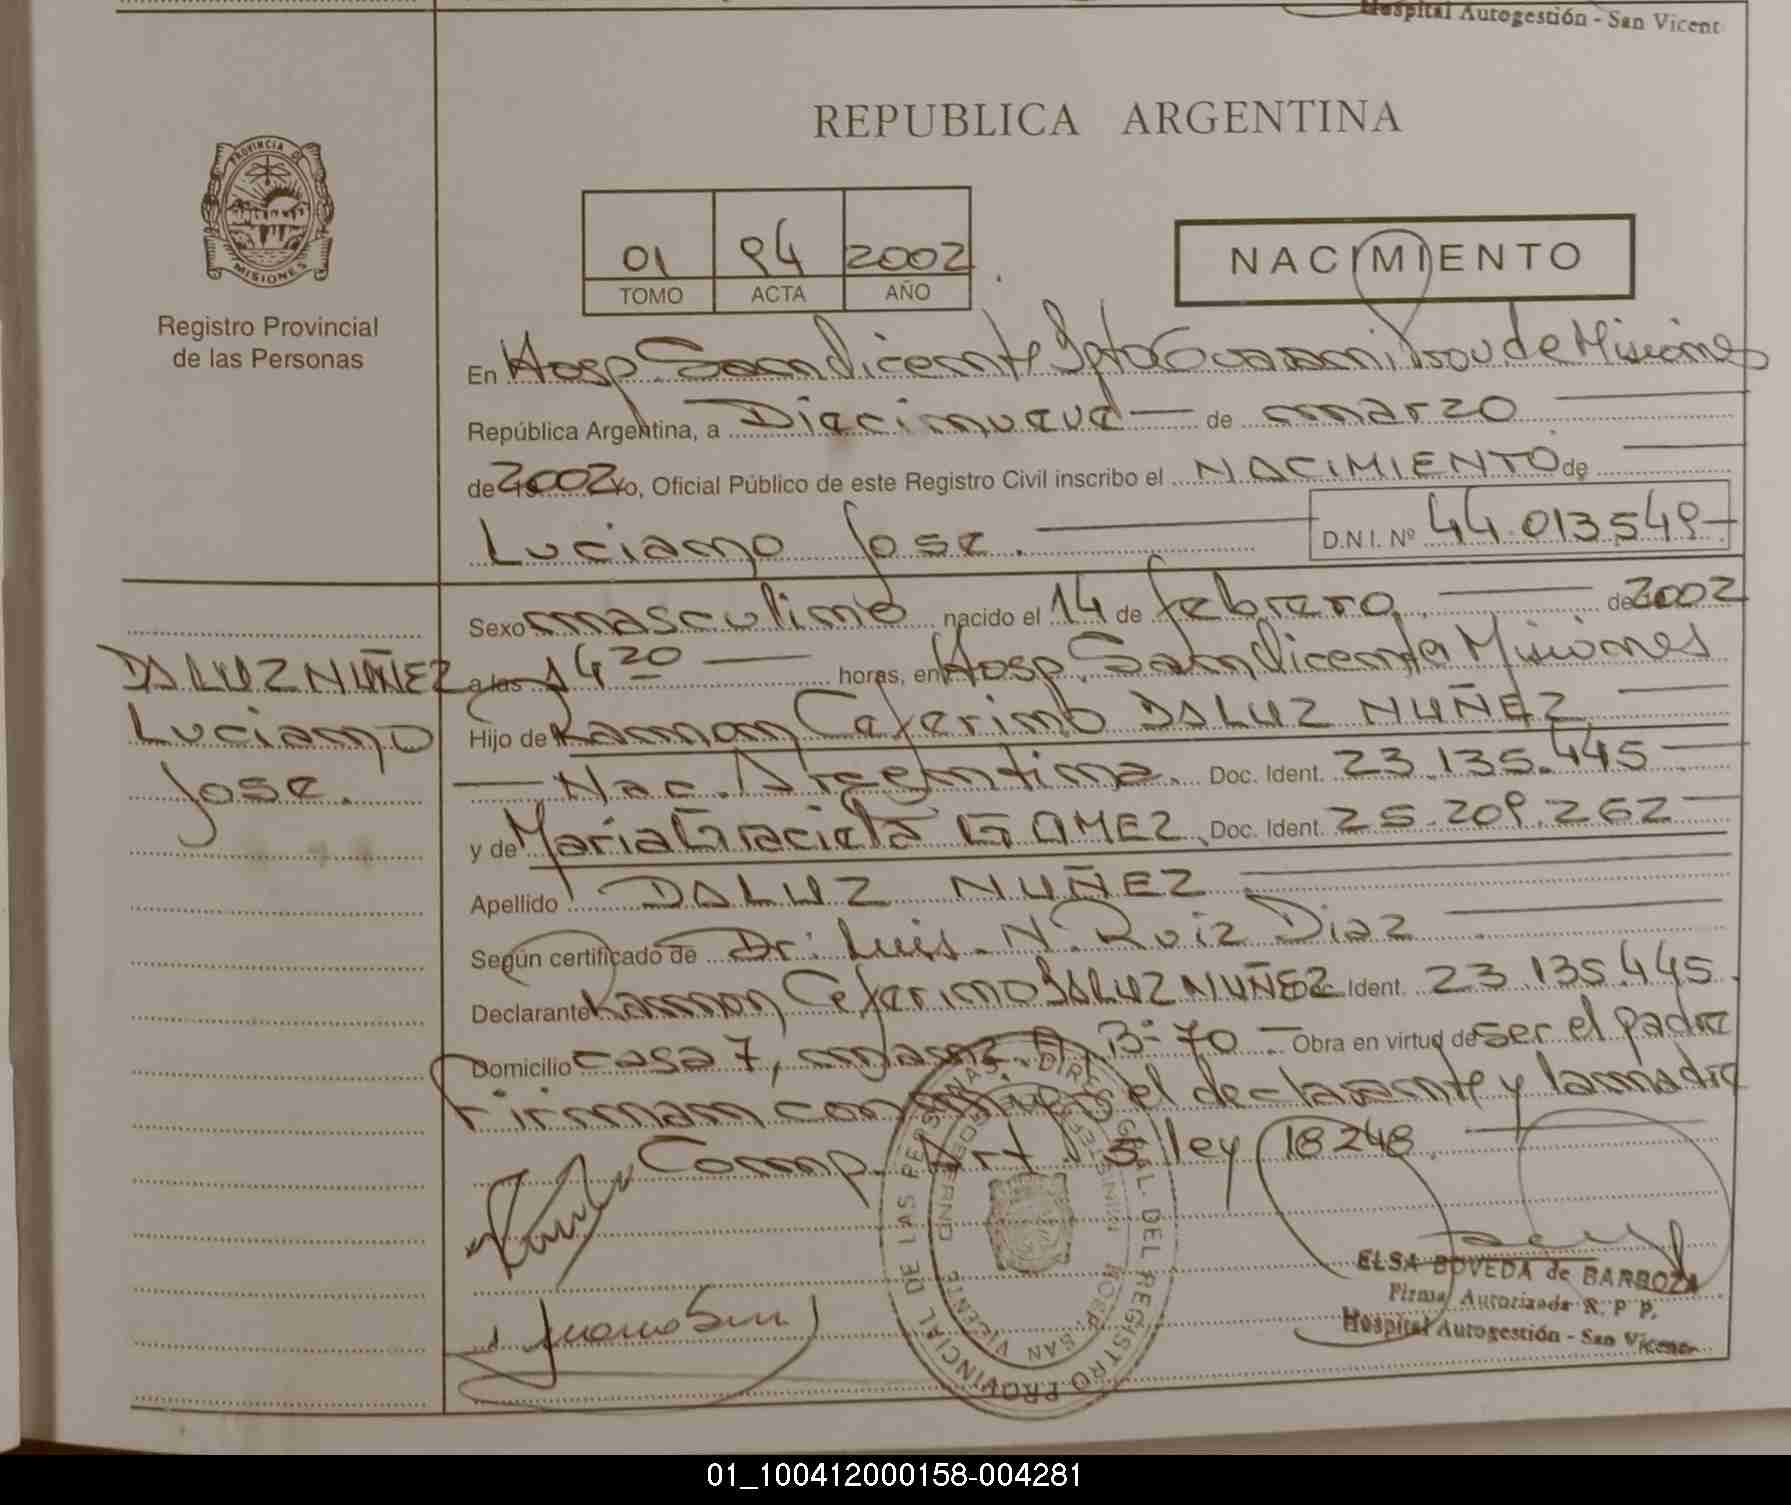 Hospital Autogestión - San Vicent
REPUBLICA ARGENTINA
PROVINCIA DE
MISIONES
Registro Provincial
de las Personas
01 94 2002
TOMO ACTA AÑO
NACIMIENTO
En Hosp. San Vicente Dpto Guarani Prov de Misiones
República Argentina, a Diecinueve de marzo
de 2002 yo, Oficial Público de este Registro Civil inscribo el NACIMIENTO de
Luciano Jose. D.N.I. Nº 44.013.549
Sexo masculino nacido el 14 de febrero de 2002
DA LUZ NUÑEZ
Luciano
Jose.
a las 14 20 horas, en Hosp. San Vicente Misiones
Hijo de Ramon Ceferino DA LUZ NUÑEZ
Nac. Argentina. Doc. Ident. 23.135.445
y de Maria Graciela GOMEZ Doc. Ident. 25.209.262
Apellido DA LUZ NUÑEZ
Según certificado de Dr: Luis. N. Ruiz Diaz
Declarante Ramon Ceferino DA LUZ NUÑEZ Ident. 23.135.445
Domicilio casa 7, Obra en virtud de ser el padre
Firman el declarante y la madre
Comp. Art 5 ley 18248.
DIREC. GRAL. DEL REGISTRO PROVINCIAL DE LAS PERSONAS
HOSP. SAN VICENTE
ELSA BOVEDA de BARBOZA
Firma Autorizada R. P. P.
Hospital Autogestión - San Vicente
01_100412000158-004281